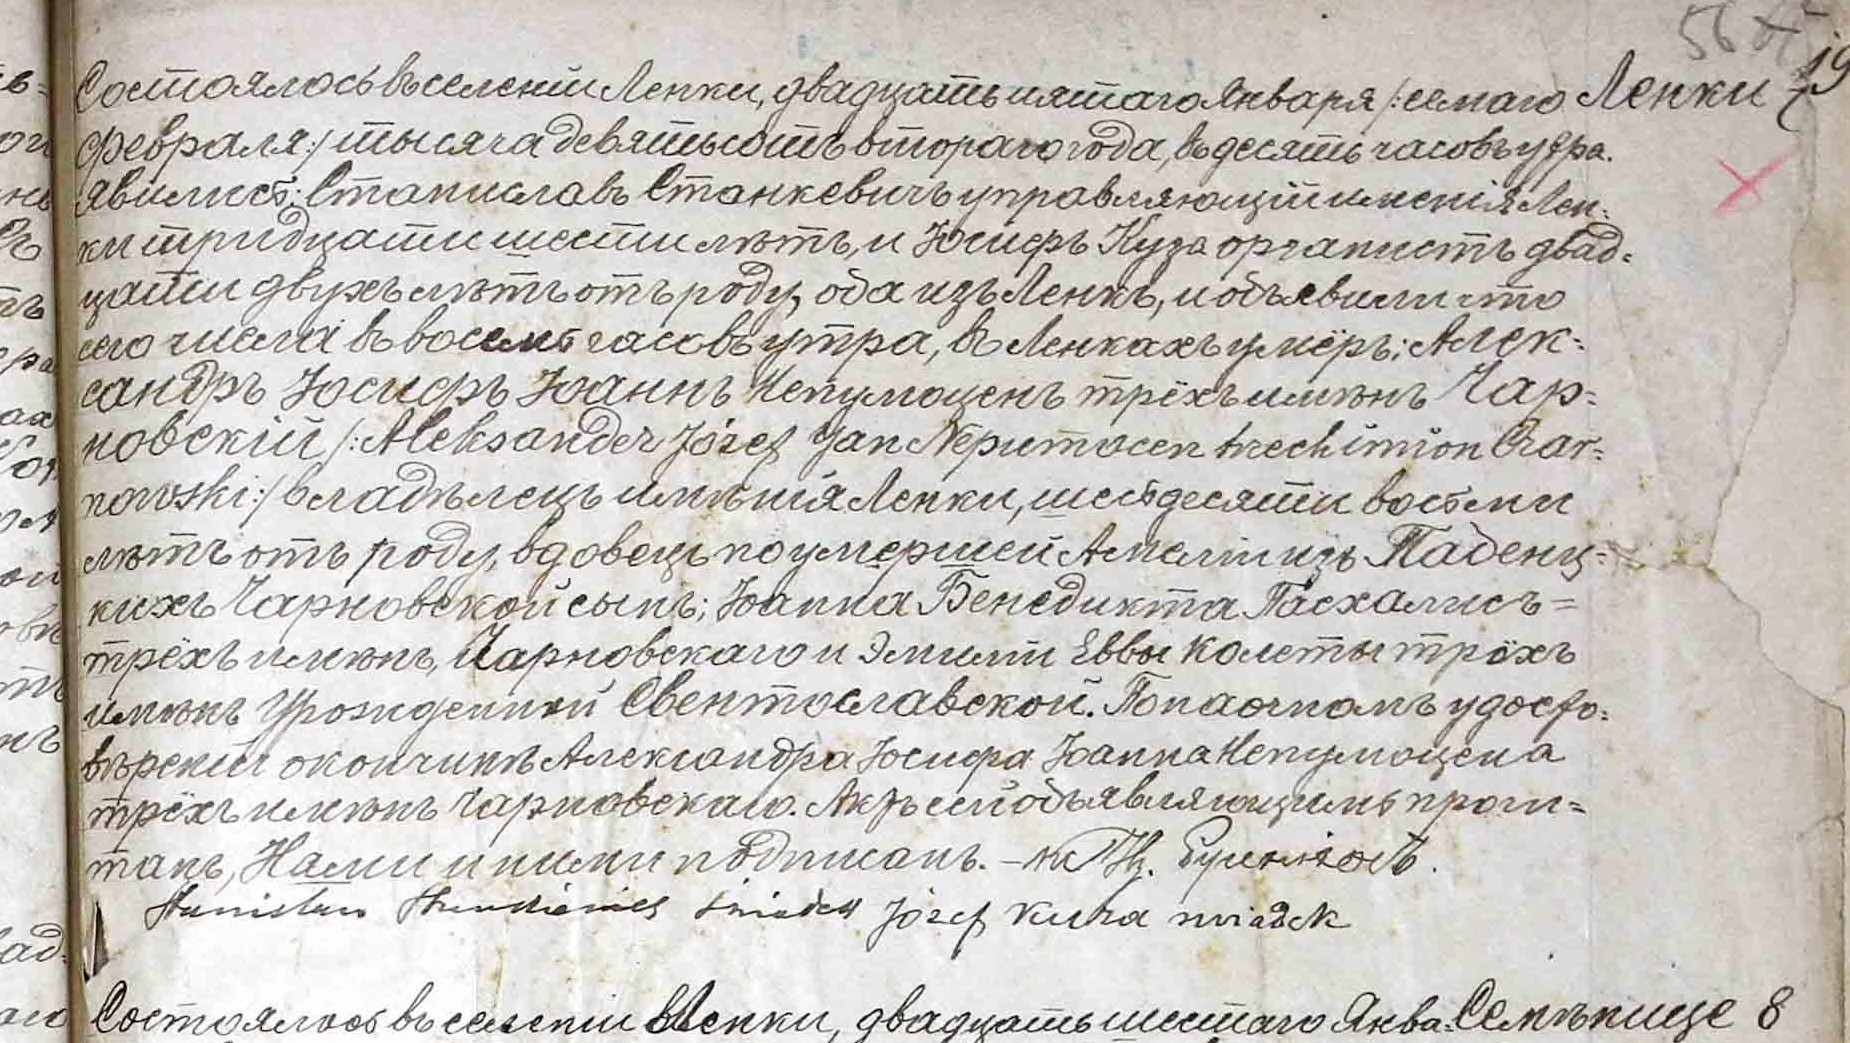 56
19
Состоялось въ селеніи Ленки, двадцать пятаго Января /:семаго Ленки 7
Февраля:/ тысяча девятьсотъ втораго года, въ десять часовъ утра.
Явились: Станиславъ Станкевичъ управляющій именія Лен-
ки тридцати шести лѣтъ, и Юсифъ Куза органистъ двад-
цати двухъ лѣтъ отъ роду, оба изъ Ленкъ, и объявили что
сего числа въ восемь часовъ утра, въ Ленкахъ умёръ: Алек-
сандръ Юсифъ Юаннъ Непумоценъ трёхъ имёнъ Чар-
новскій /:Aleksander Józef Jan Nepumocen trech imion Czar-
nowski:/ владѣлецъ имѣнія Ленки, шестдесяти восьми
лѣтъ отъ роду, вдовецъ по умершей Амеліи изъ Паденц-
кихъ Чарновской сынъ; Юанна Бенедикта Пасхалисъ=
трёхъ имёнъ, Чарновскаго и Эмиліи Еввы Колеты трёхъ
имёнъ Урожденной Свентославской. По наочномъ удосто-
вѣреніи окончинѣ Александра Юсифа Юанна Непумоцена
трёхъ имёнъ Чарновскаго. Актъ сей объявляющимъ прочи-
танъ, Нами и ними подписанъ. –
Stanisław Stankiewicz świadek Józef Kuza świadek
Состоялось въ селеніи Ленки, двадцать шестаго Янва- Семѣнице 8